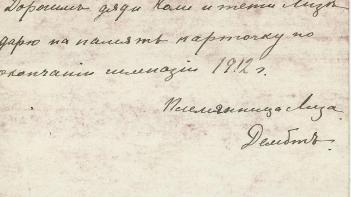 Дорогимъ дяди Коли и тети Лизѣ
дарю на память карточку по
окончаніи гимназіи 1912 г.
Племянница Лиза
Дембтъ.